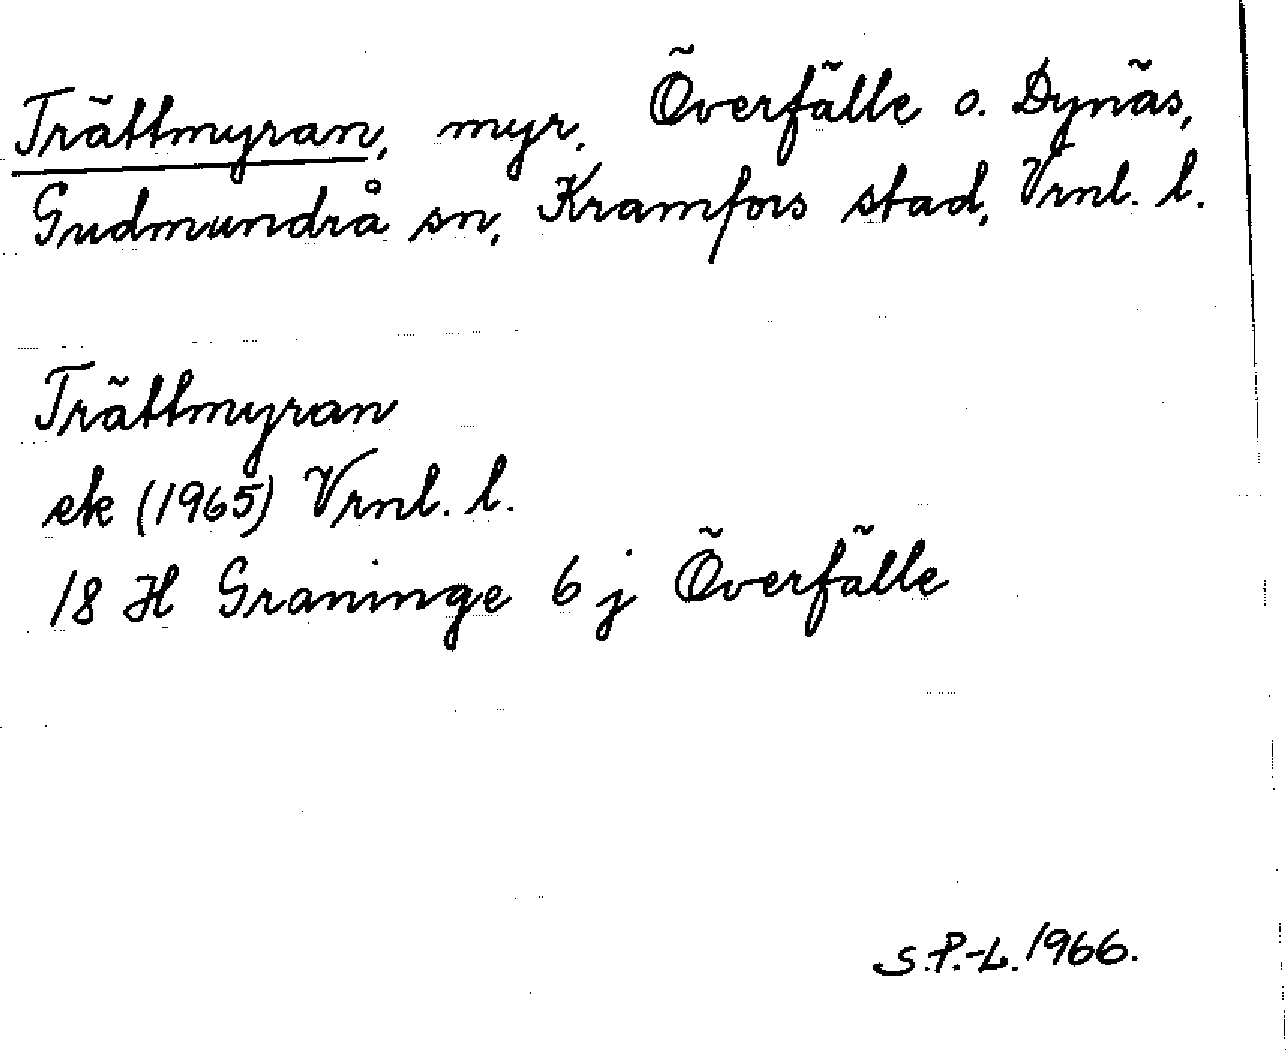 Trättmyran, myr, Överfälle o. Dynäs,
Gudmundrå sn, Kramfors stad, Vrnl. l.
Trättmyran
ek (1965) Vrnl. l.
18 H Graninge 6 j Överfälle
S.P.-L. 1966.